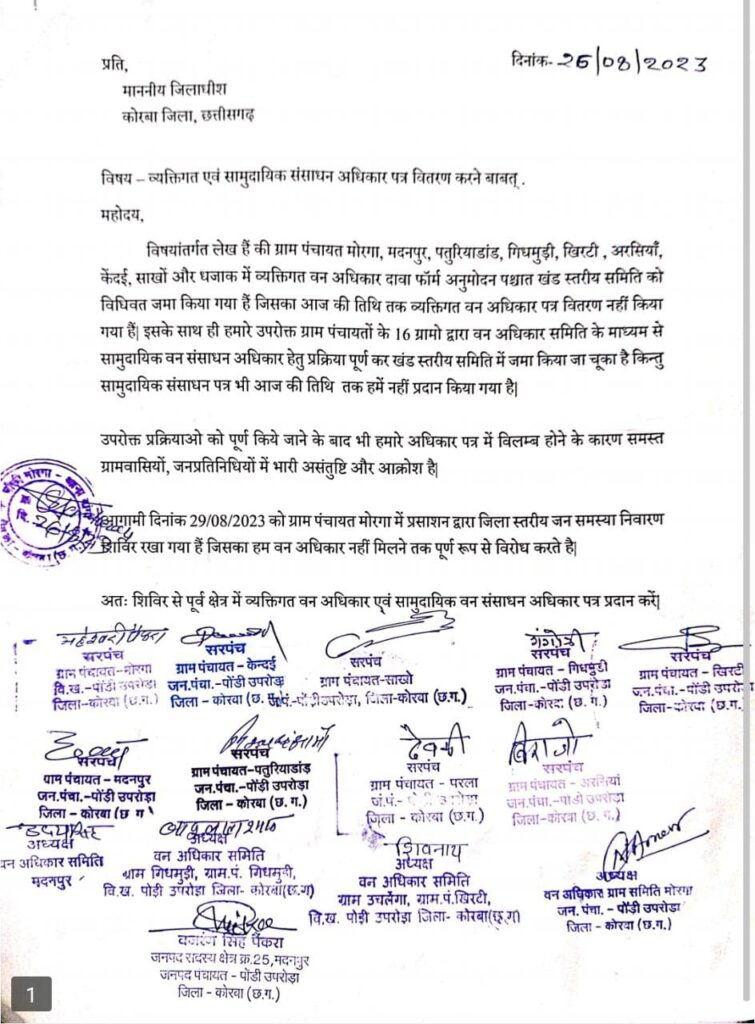 प्रति,
दिनांक- 26/08/2023
माननीय जिलाधीश
कोरबा जिला, छत्तीसगढ़
विषय – व्यक्तिगत एवं सामुदायिक संसाधन अधिकार पत्र वितरण करने बाबत् .
महोदय,
विषयांतर्गत लेख हैं की ग्राम पंचायत मोरगा, मदनपुर, पतुरियाडांड, गिधमुड़ी, खिरटी , अरसियाँ,
केंदई, साखों और धजाक में व्यक्तिगत वन अधिकार दावा फॉर्म अनुमोदन पश्चात खंड स्तरीय समिति को
विधिवत जमा किया गया हैं जिसका आज की तिथि तक व्यक्तिगत वन अधिकार पत्र वितरण नहीं किया
गया हैं| इसके साथ ही हमारे उपरोक्त ग्राम पंचायतों के 16 ग्रामो द्वारा वन अधिकार समिति के माध्यम से
सामुदायिक वन संसाधन अधिकार हेतु प्रक्रिया पूर्ण कर खंड स्तरीय समिति में जमा किया जा चूका है किन्तु
सामुदायिक संसाधन पत्र भी आज की तिथि तक हमें नहीं प्रदान किया गया है|
उपरोक्त प्रक्रियाओ को पूर्ण किये जाने के बाद भी हमारे अधिकार पत्र में विलम्ब होने के कारण समस्त
ग्रामवासियों, जनप्रतिनिधियों में भारी असंतुष्टि और आक्रोश है|
आगामी दिनांक 29/08/2023 को ग्राम पंचायत मोरगा में प्रसाशन द्वारा जिला स्तरीय जन समस्या निवारण
शिविर रखा गया हैं जिसका हम वन अधिकार नहीं मिलने तक पूर्ण रूप से विरोध करते है|
अतः शिविर से पूर्व क्षेत्र में व्यक्तिगत वन अधिकार एवं सामुदायिक वन संसाधन अधिकार पत्र प्रदान करें|
सरपंच
ग्राम पंचायत-मोरगा
वि.ख.-पोंडी उपरोड़ा
जिला-कोरबा (छ.ग.)
सरपंच
ग्राम पंचायत - केन्दई
जन.पंचा.-पोंडी उपरोड़ा
जिला - कोरबा (छ. ग.)
सरपंच
ग्राम पंचायत-साखो
पोंडीउपरोड़ा, जिला-कोरवा (छ.ग.)
गंगोत्री
सरपंच
ग्राम पंचायत - गिधमुडी
जन.पंचा.-पोंडी उपरोड़ा
जिला-कोरवा (छ.ग.)
सरपंच
ग्राम पंचायत - खिरटी
जन.पंचा.-पोंडी उपरोड़ा
जिला-कोरबा (छ.ग.)
सरपंच
ग्राम पंचायत - मदनपुर
जन.पंचा.-पोंडी उपरोड़ा
जिला - कोरबा (छ ग)
सरपंच
ग्राम पंचायत-पतुरियाडांड़
जन.पंचा.-पोंडी उपरोड़ा
जिला - कोरबा (छ. ग.)
देवकी
सरपंच
ग्राम पंचायत - परला
जं.पं.- पोंडी उपरोड़ा
जिला - कोरबा (छ.ग.)
बिराजो
सरपंच
ग्राम पंचायत - अरसियां
जन.पंचा.-पोंडी उपरोड़ा
जिला - कोरवा (छ.ग.)
उदयसिंह
अध्यक्ष
वन अधिकार समिति
मदनपुर
अध्यक्ष
वन अधिकार समिति
ग्राम गिधमुड़ी, ग्राम.पं. गिधमुड़ी,
वि.ख. पोड़ी उपरोड़ा जिला- कोरबा(छ.ग)
शिवनाथ
अध्यक्ष
वन अधिकार समिति
ग्राम उचलेंगा, ग्राम.पं.खिरटी,
वि.ख. पोड़ी उपरोड़ा जिला- कोरबा(छ.ग)
अध्यक्ष
वन अधिकार ग्राम समिति मोरगा
जन. पंचा. - पोंडी उपरोड़ा
जिला - कोरबा (छ.ग.)
वजरंग सिंह पैंकरा
जनपद सदस्य क्षेत्र क्र.25,मदनपुर
जनपद पंचायत - पोंडी उपरोड़ा
जिला - कोरवा (छ.ग.)
1